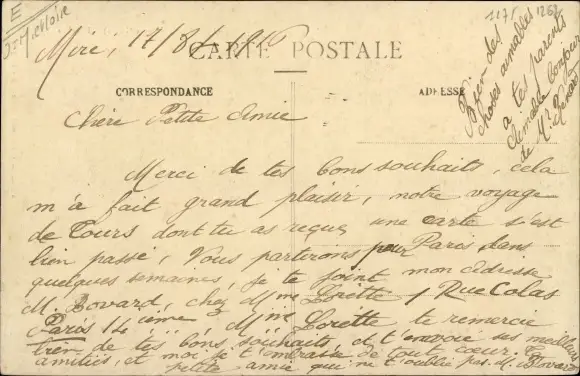 E
1175 1262
Miré, 17/8/1916
CARTE POSTALE
CORRESPONDANCE
ADRESSE
Bien des
choses aimables
à tes parents
aimable bonjour
de Mr
Chère Petite Amie
Merci de tes bons souhaits, cela
m'a fait grand plaisir, notre voyage
de Tours dont tu as reçu une carte s'est
bien passé, Nous partirons pour Paris dans
quelques semaines, je te joint mon adresse
M. Bovard, chez Mme Lorette 1 Rue Colas
Paris 14 ième, Mme Lorette te remercie
bien de tes bons souhaits, et t'envoie ses meilleurs
amitiés, et moi je t'embrasse de tout cœur. Ta
petite amie qui ne t'oublie pas. M. Bovard